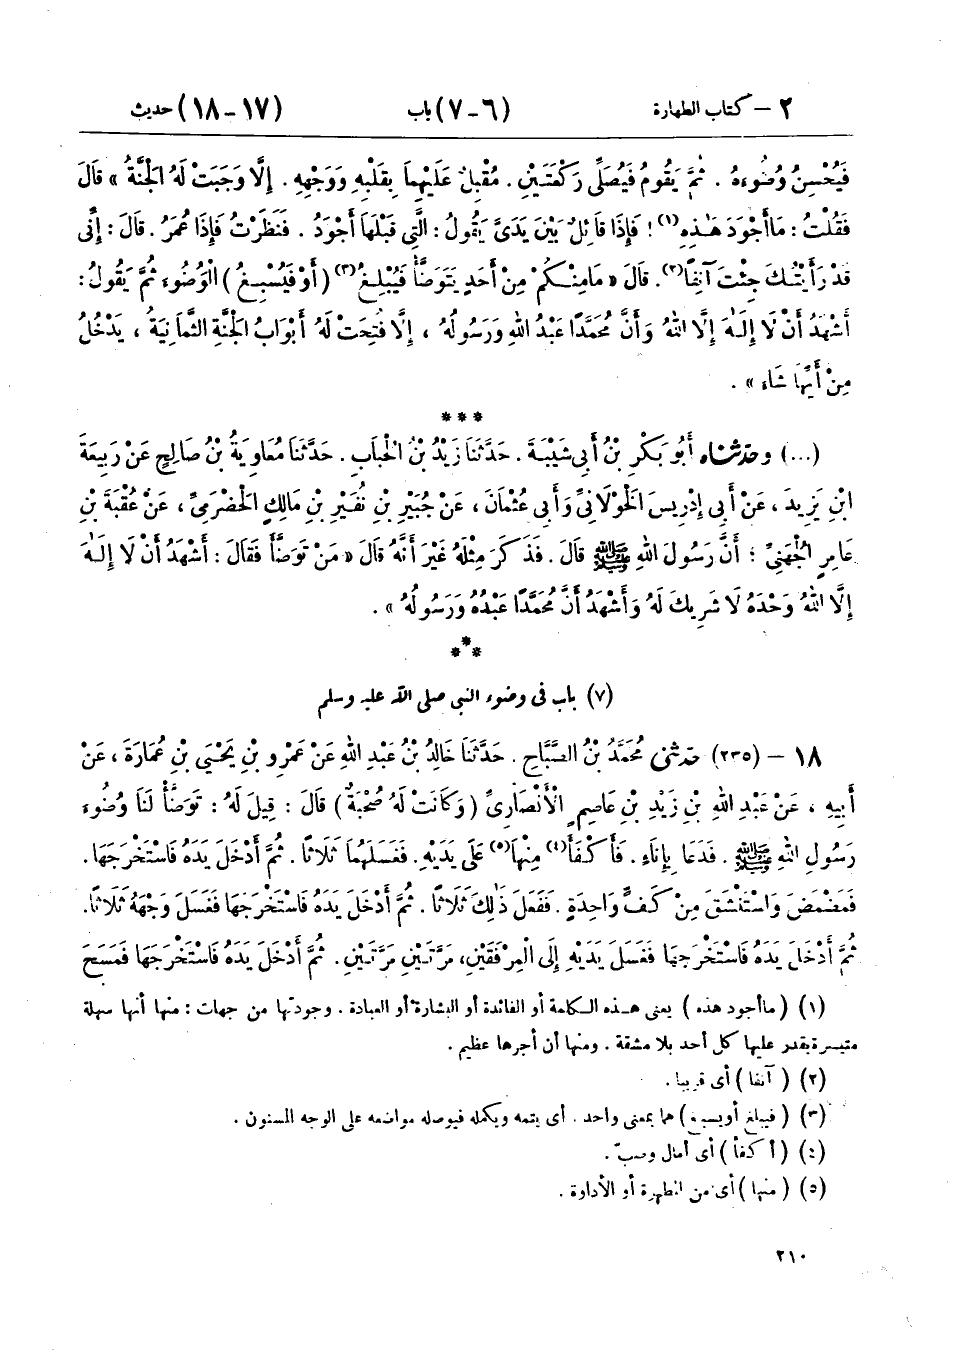 ٢ – كتاب الطهارة (٦ – ٧) باب (١٧ – ١٨) حديث
فَيُحْسِنُ وُضُوءَهُ . ثُمَّ يَقُومُ فَيُصَلِّى رَكْعَتَيْنِ . مُقْبِلٌ عَلَيْهِمَا بِقَلْبِهِ وَوَجْهِهِ . إِلَّا وَجَبَتْ لَهُ الْجَنَّةُ » قَالَ
فَقُلْتُ : مَا أَجْوَدَ هَٰذِهِ (١) ! فَإِذَا قَائِلٌ بَيْنَ يَدَىَّ يَقُولُ : الَّتِي قَبْلَهَا أَجْوَدُ . فَنَظَرْتُ فَإِذَا عُمَرُ . قَالَ : إِنِّى
قَدْ رَأَيْتُكَ جِئْتَ آنِفًا (٢) . قَالَ « مَا مِنْكُمْ مِنْ أَحَدٍ يَتَوَضَّأُ فَيُبْلِغُ (٣) ( أَوْ فَيُسْبِغُ ) الْوُضُوءَ ثُمَّ يَقُولُ :
أَشْهَدُ أَنْ لَا إِلَهَ إِلَّا اللهُ وَأَنَّ مُحَمَّدًا عَبْدُ اللهِ وَرَسُولُهُ ، إِلَّا فُتِحَتْ لَهُ أَبْوَابُ الْجَنَّةِ الثَّمَانِيَةُ ، يَدْخُلُ
مِنْ أَيِّهَا شَاءَ » .
***
(...) وحدثناه أَبُو بَكْرِ بْنُ أَبِي شَيْبَةَ . حَدَّثَنَا زَيْدُ بْنُ الْحُبَابِ . حَدَّثَنَا مُعَاوِيَةُ بْنُ صَالِحٍ عَنْ رَبِيعَةَ
ابْنِ يَزِيدَ ، عَنْ أَبِي إِدْرِيسَ الْخَوْلَانِيِّ وَأَبِي عُثْمَانَ ، عَنْ جُبَيْرِ بْنِ نُفَيْرِ بْنِ مَالِكٍ الْحَضْرَمِيِّ ، عَنْ عُقْبَةَ بْنِ
عَامِرٍ الْجُهَنِيِّ ؛ أَنَّ رَسُولَ اللهِ ﷺ قَالَ . فَذَكَرَ مِثْلَهُ غَيْرَ أَنَّهُ قَالَ « مَنْ تَوَضَّأَ فَقَالَ : أَشْهَدُ أَنْ لَا إِلَهَ
إِلَّا اللهُ وَحْدَهُ لَا شَرِيكَ لَهُ وَأَشْهَدُ أَنَّ مُحَمَّدًا عَبْدُهُ وَرَسُولُهُ » .
***
(٧) باب فى وضوء النبى صلى الله عليه وسلم
١٨ – (٢٣٥) حدثنى مُحَمَّدُ بْنُ الصَّبَّاحِ . حَدَّثَنَا خَالِدُ بْنُ عَبْدِ اللهِ عَنْ عَمْرِو بْنِ يَحْيَى بْنِ عُمَارَةَ ، عَنْ
أَبِيهِ ، عَنْ عَبْدِ اللهِ بْنِ زَيْدِ بْنِ عَاصِمٍ الْأَنْصَارِيِّ ( وَكَانَتْ لَهُ صُحْبَةٌ ) قَالَ : قِيلَ لَهُ : تَوَضَّأْ لَنَا وُضُوءَ
رَسُولِ اللهِ ﷺ . فَدَعَا بِإِنَاءٍ . فَأَكْفَأَ (٤) مِنْهَا (٥) عَلَى يَدَيْهِ . فَغَسَلَهُمَا ثَلَاثًا . ثُمَّ أَدْخَلَ يَدَهُ فَاسْتَخْرَجَهَا .
فَمَضْمَضَ وَاسْتَنْشَقَ مِنْ كَفٍّ وَاحِدَةٍ . فَفَعَلَ ذَٰلِكَ ثَلَاثًا . ثُمَّ أَدْخَلَ يَدَهُ فَاسْتَخْرَجَهَا فَغَسَلَ وَجْهَهُ ثَلَاثًا .
ثُمَّ أَدْخَلَ يَدَهُ فَاسْتَخْرَجَهَا فَغَسَلَ يَدَيْهِ إِلَى الْمِرْفَقَيْنِ ، مَرَّتَيْنِ مَرَّتَيْنِ . ثُمَّ أَدْخَلَ يَدَهُ فَاسْتَخْرَجَهَا فَمَسَحَ
(١) ( ما أجود هذه ) يعنى هذه الكلمة أو الفائدة أو البشارة أو العبادة . وجودتها من جهات : منها أنها سهلة
متيسرة يقدر عليها كل أحد بلا مشقة . ومنها أن أجرها عظيم .
(٢) ( آنفا ) أى قريبا .
(٣) ( فيبلغ أو يسبغ ) هما بمعنى واحد . أى يتمه ويكمله فيوصله مواضعه على الوجه المسنون .
(٤) ( أكفأ ) أى أمال وصبّ .
(٥) ( منها ) أى من المطهرة أو الأداوة .
٢١٠